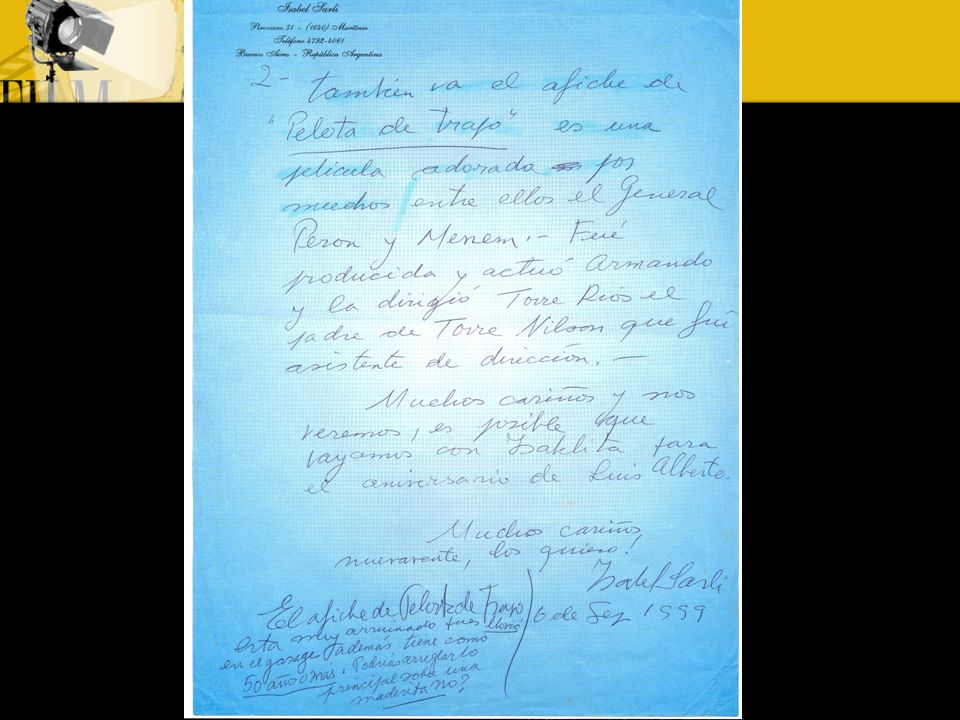 FILM
Isabel Sarli
Pirovano 51 - (1640) Martínez
Teléfono 4792-4061
Buenos Aires - República Argentina
2- tambien va el afiche de
"Pelota de trapo" es una
pelicula adorada por
muchos entre ellos el General
Peron y Menem.- Fué
producida y actuó Armando
y la dirigió Torre Rios el
padre de Torre Nilson que fué
asistente de dirección. -
Muchos cariños y nos
veremos, es posible que
vayamos con Isabelita para
el aniversario de Luis Alberto.
Muchos cariños,
nuevamente, los quiero!
Isabel Sarli
6 de Sep 1999
El afiche de Pelota de Trapo
esta muy arruinado pues llovió
en el garage además tiene como
50 años o mas. Podrias arreglar lo
principal sobre una
maderita no?